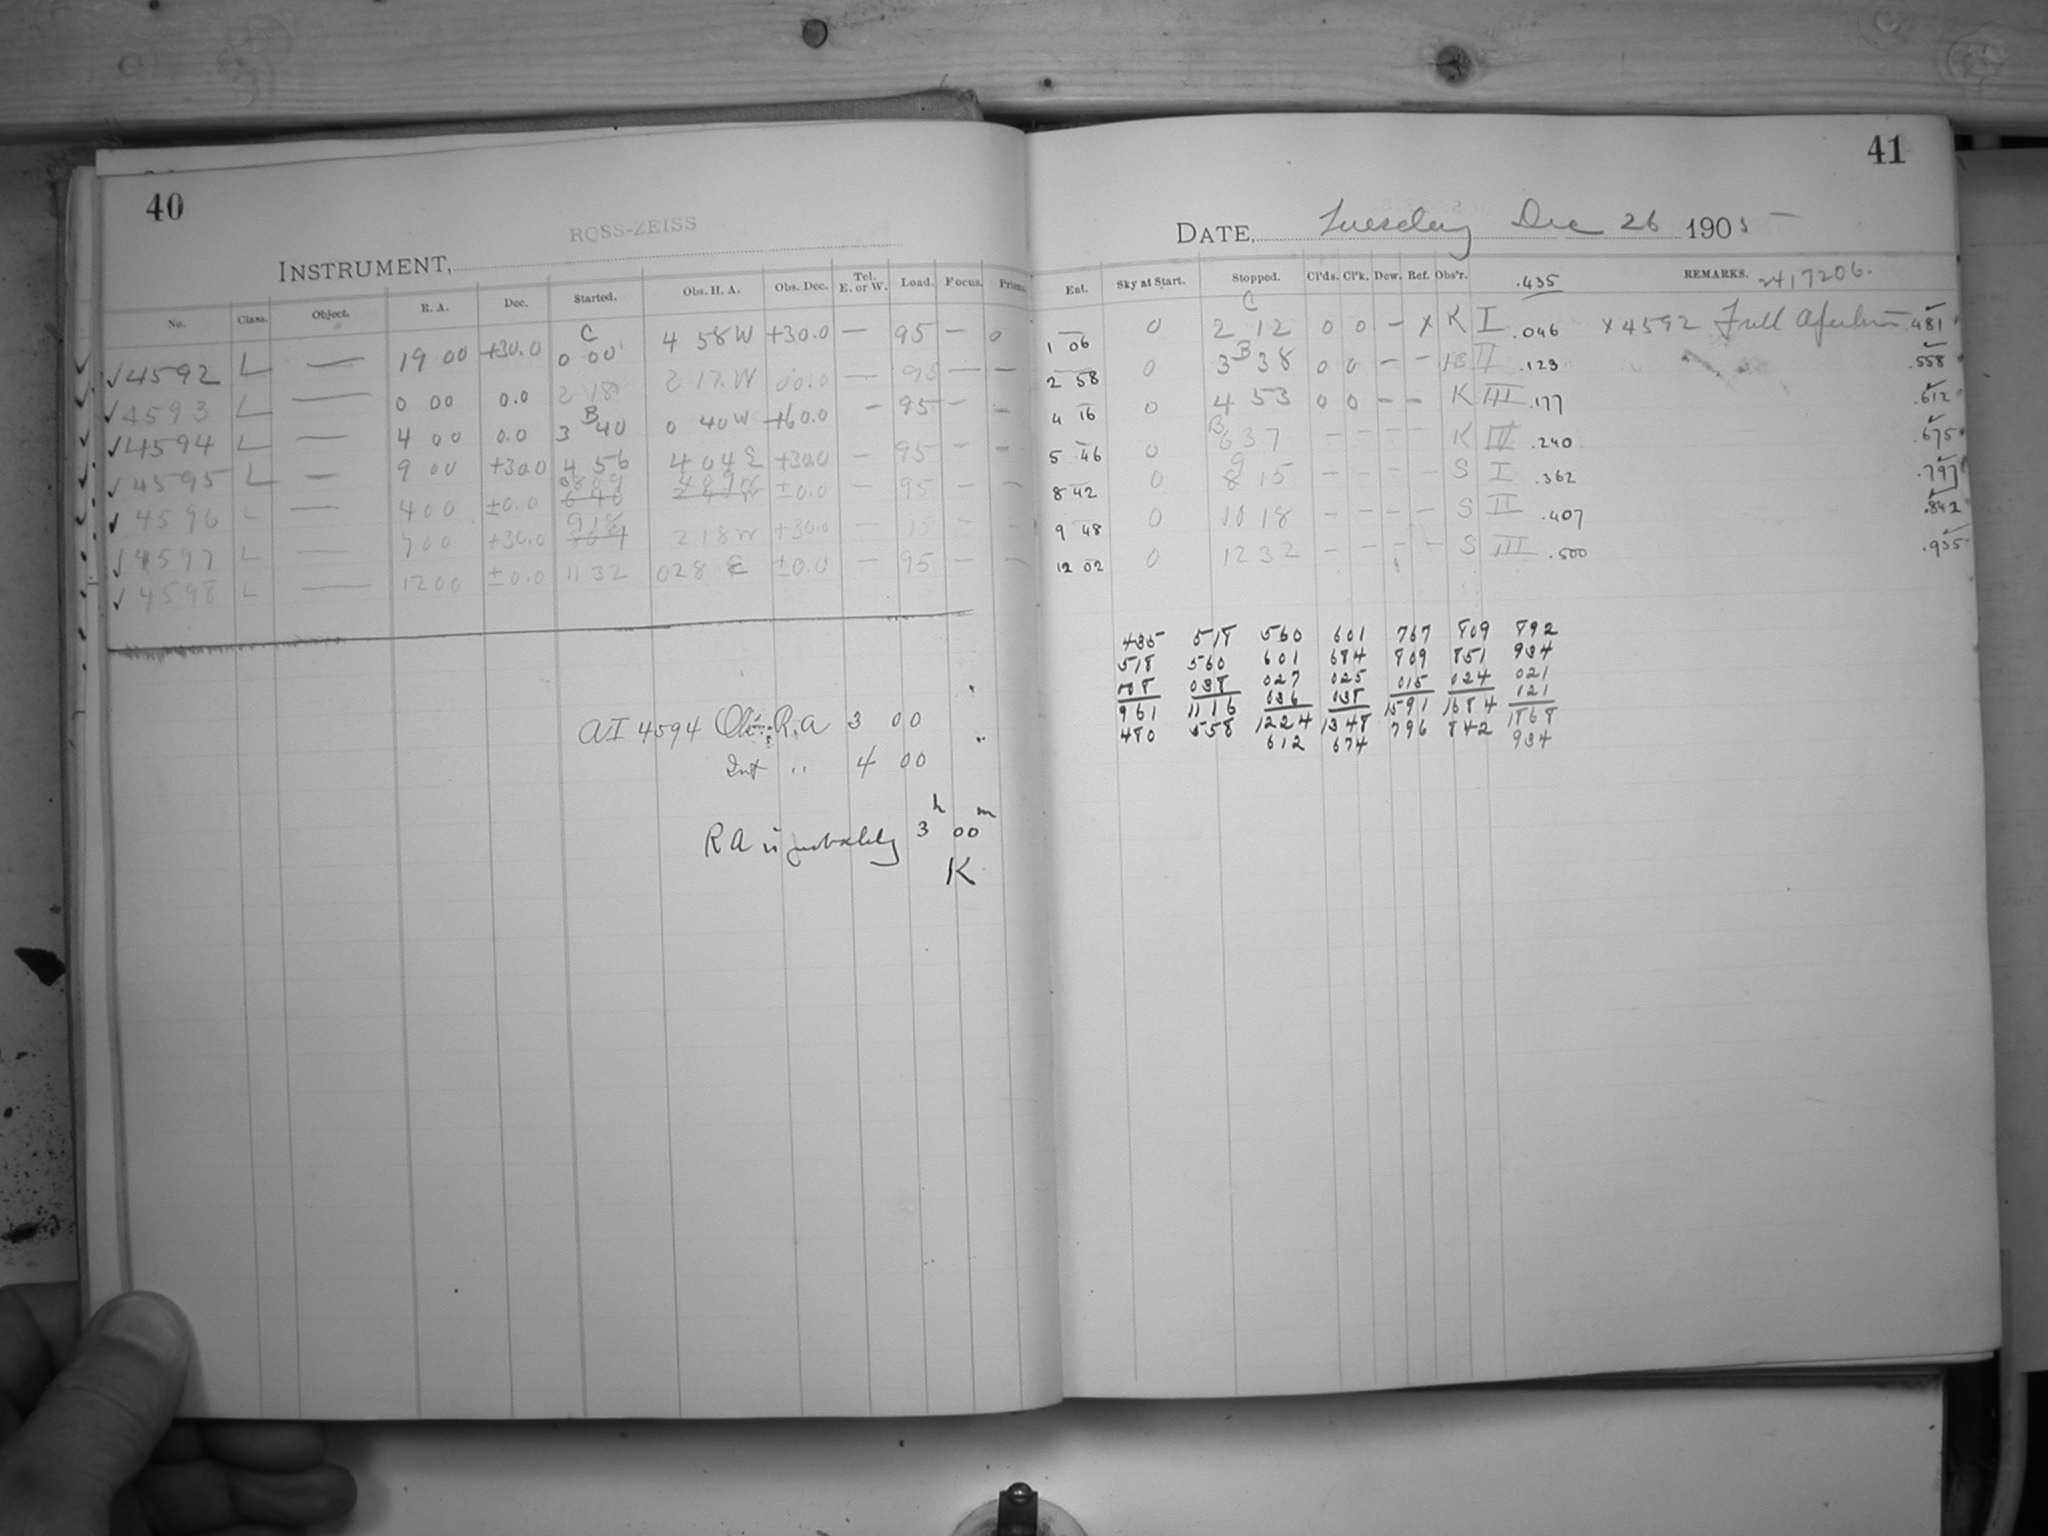 40
ROSS-ZEISS
INSTRUMENT,
No. Class. Object. R. A. Dec. Started. Obs. H. A. Obs. Dec. Tel. E. or W. Load. Focus. Prism.
✓4592 L — 19 00 +30.0 C 0 00 4 58 W +30.0 — 95 — 0
✓4593 L — 0 00 0.0 2 18 2 17 W 00.0 — 95 — —
✓4594 L — 4 00 0.0 B 3 40 0 40 W +60.0 — 95 — —
✓4595 L — 9 00 +30.0 4 56 4 04 E +30.0 — 95 — —
✓4596 L — 4 00 ±0.0 ±0.0 — 95 — —
✓4597 L — 7 00 +30.0 918 218 W +30.0 — —
✓4598 L — 12 00 ±0.0 11 32 028 E ±0.0 — 95 — —
AI 4594 R.A 3 00
4 00
RA is probably 3h 00m
K
41
DATE, Tuesday Dec 26 1905
Ent. Sky at Start. Stopped. Cl'ds. Cl'k. Dew. Ref. Obs'r. .435 REMARKS. 2417206.
1 06 0 C 2 12 0 0 — x K I .046 x 4592 Full Aperture .481
2 58 0 B 3 38 0 0 — — II .123 .558
4 16 0 4 53 0 0 — — K III .177 .612
5 46 0 B 637 — — — — K IV .240 .675
8 42 0 9 8 15 — — — — S I .362 .797
9 48 0 10 18 — — — — S II .407 .842
12 02 0 12 32 — — — — S III .500 .935
435 518 560 601 767 809 892
518 560 601 684 809 851 934
008 038 027 025 015 024 021
961 1116 036 038 1591 1684 121
480 558 1224 1348 796 842 1868
612 674 934